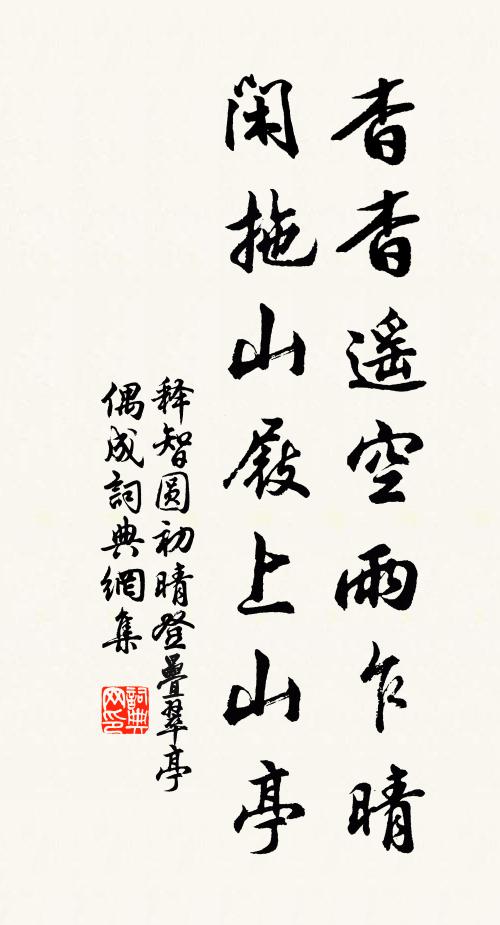 杳杳遥空雨乍晴
闲拖山屐上山亭
释智圆初晴登叠翠亭
偶成詞典網集
詞典网印